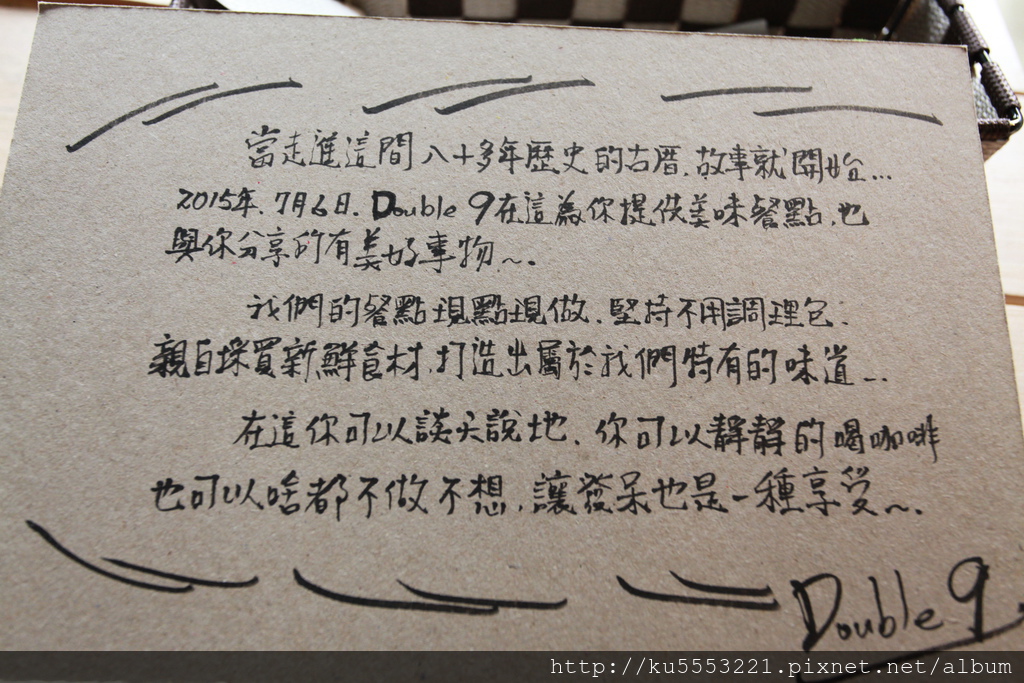 當走進這間八十多年歷史的古厝,故事就開始...
2015年.7月6日.Double 9在這為你提供美味餐點,也
與你分享所有美好事物~.
我們的餐點現點現做.堅持不用調理包.
親自採買新鮮食材,打造出屬於我們特有的味道...
在這你可以談天說地.你可以靜靜的喝咖啡
也可以啥都不做不想,讓發呆也是一種享受~.
Double 9
http://ku5553221.pixnet.net/album